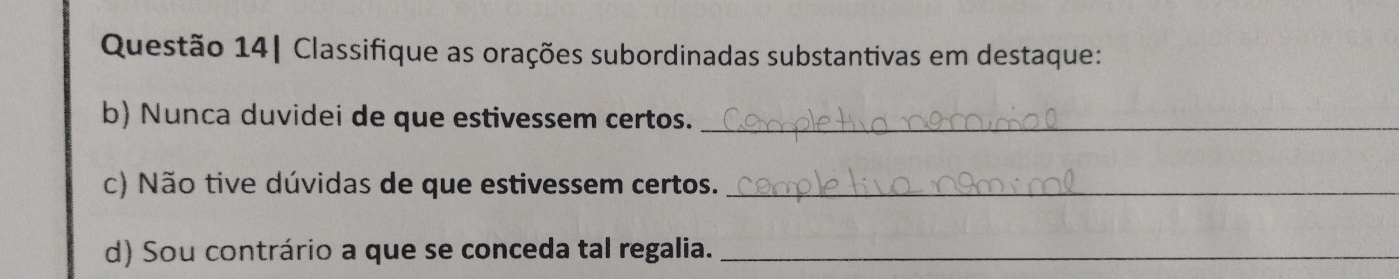 Questão 14| Classifique as orações subordinadas substantivas em destaque:
b) Nunca duvidei de que estivessem certos. Completiva nominal
c) Não tive dúvidas de que estivessem certos. completiva nominl
d) Sou contrário a que se conceda tal regalia.